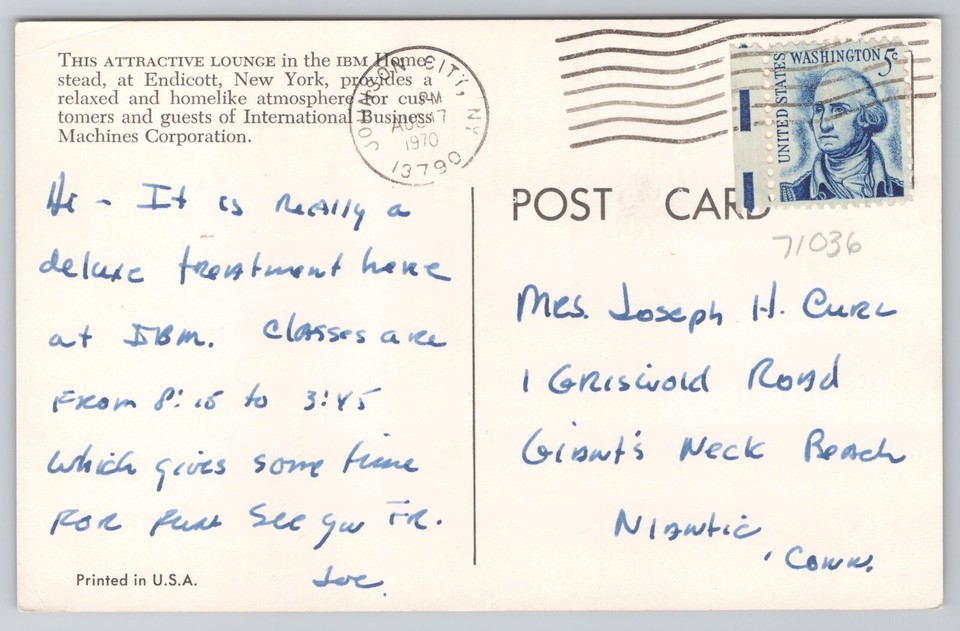 THIS ATTRACTIVE LOUNGE in the IBM Home-
stead, at Endicott, New York, provides a
relaxed and homelike atmosphere for cus-
tomers and guests of International Business
Machines Corporation.
JOHNSON CITY, NY
PM
AUG 17
1970
13790
UNITED STATES
WASHINGTON 5c
POST CARD
71036
Hi - It is really a
deluxe treatment here
at IBM. Classes are
From 8:15 to 3:45
which gives some time
FOR fun See you FR.
Joe.
Mrs. Joseph H. Curl
1 Griswold Road
Giant's Neck Beach
Niantic,
Conn.
Printed in U.S.A.